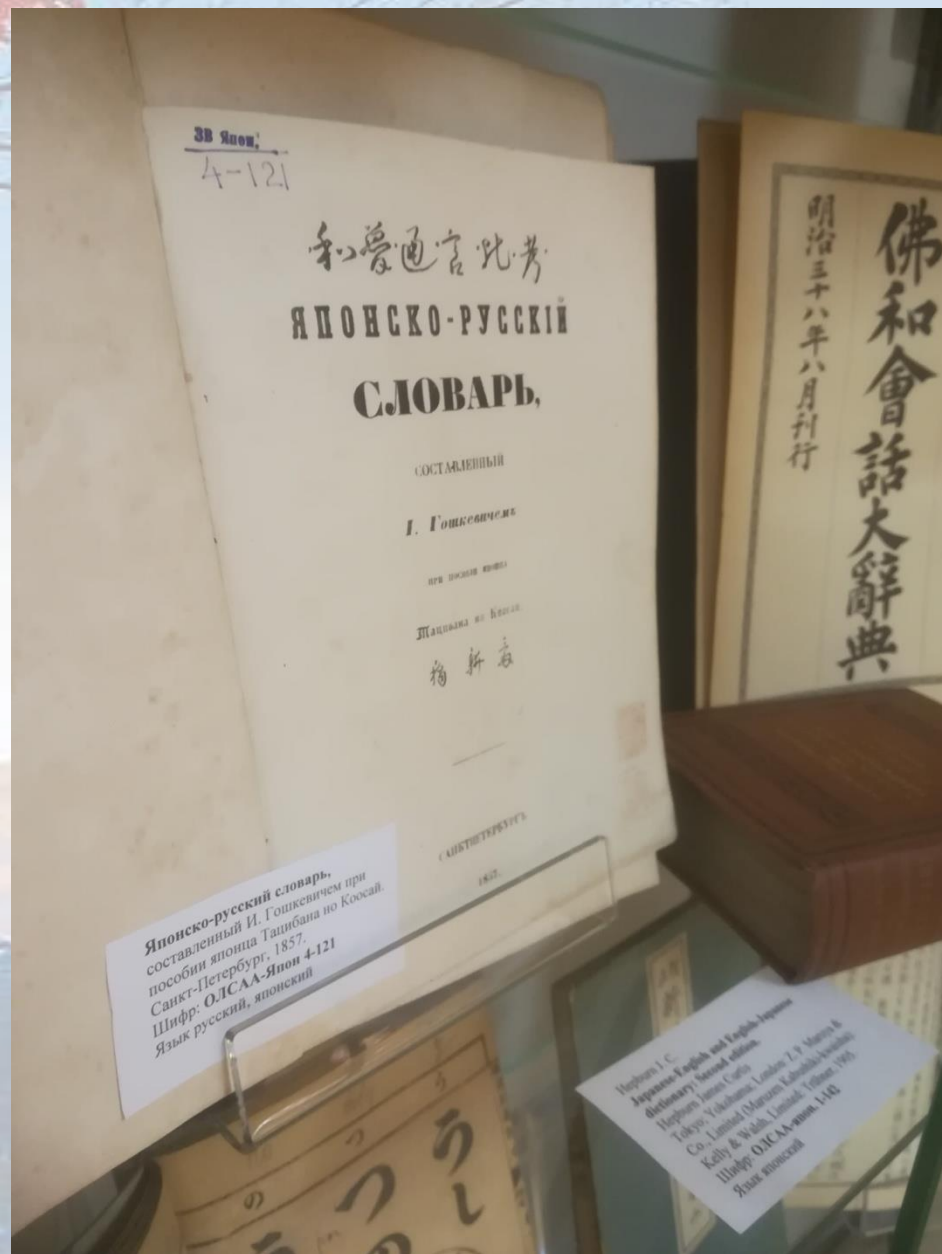 ЗВ Япон.
4-121
和魯通言比考
ЯПОНСКО-РУССКІЙ
СЛОВАРЬ,
СОСТАВЛЕННЫЙ
І. Гошкевичемъ
при пособіи японца
Тацибана но Коосаи
橘耕斎
САНКТПЕТЕРБУРГЪ
1857.
Японско-русский словарь,
составленный И. Гошкевичем при
пособии японца Тацибана но Коосай.
Санкт-Петербург, 1857.
Шифр: ОЛСАА-Япон 4-121
Язык русский, японский
佛和會話大辭典
明治三十八年八月刊行
Hepburn J. C.
Japanese-English and English-Japanese
dictionary: Second edition.
Hepburn James Curtis
Tokyo; Yokohama; London: Z. P. Maruya &
Co., Limited (Maruzen Kabushiki-kwaisha);
Kelly & Walsh, Limited; Trübner, 1905
Шифр: ОЛСАА-япон. 1-142
Язык японский
う
つ
の
うし
つ